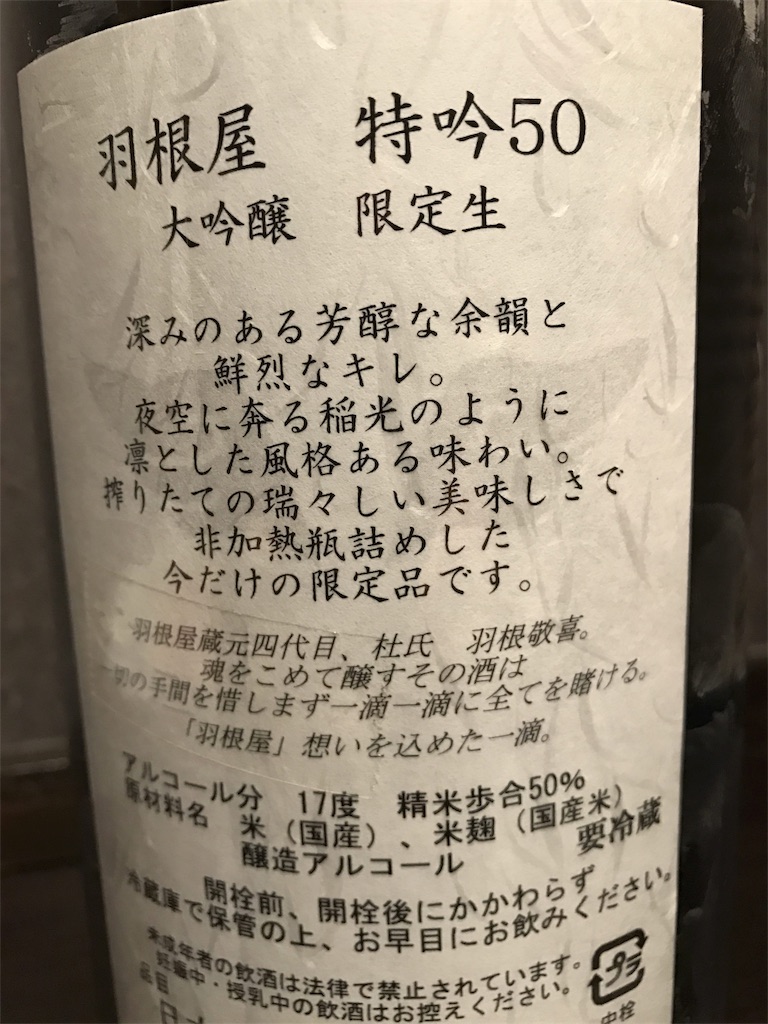 羽根屋　特吟50
大吟醸　限定生
深みのある芳醇な余韻と
鮮烈なキレ。
夜空に奔る稲光のように
凛とした風格ある味わい。
搾りたての瑞々しい美味しさで
非加熱瓶詰めした
今だけの限定品です。
羽根屋蔵元四代目、杜氏　羽根敬喜。
魂をこめて醸すその酒は
一切の手間を惜しまず一滴一滴に全てを賭ける。
「羽根屋」想いを込めた一滴。
アルコール分　17度　精米歩合50%
原材料名　米（国産）、米麹（国産米）
醸造アルコール　要冷蔵
開栓前、開栓後にかかわらず
冷蔵庫で保管の上、お早目にお飲みください。
未成年者の飲酒は法律で禁止されています。
妊娠中・授乳中の飲酒はお控えください。
品目
プラ
中栓